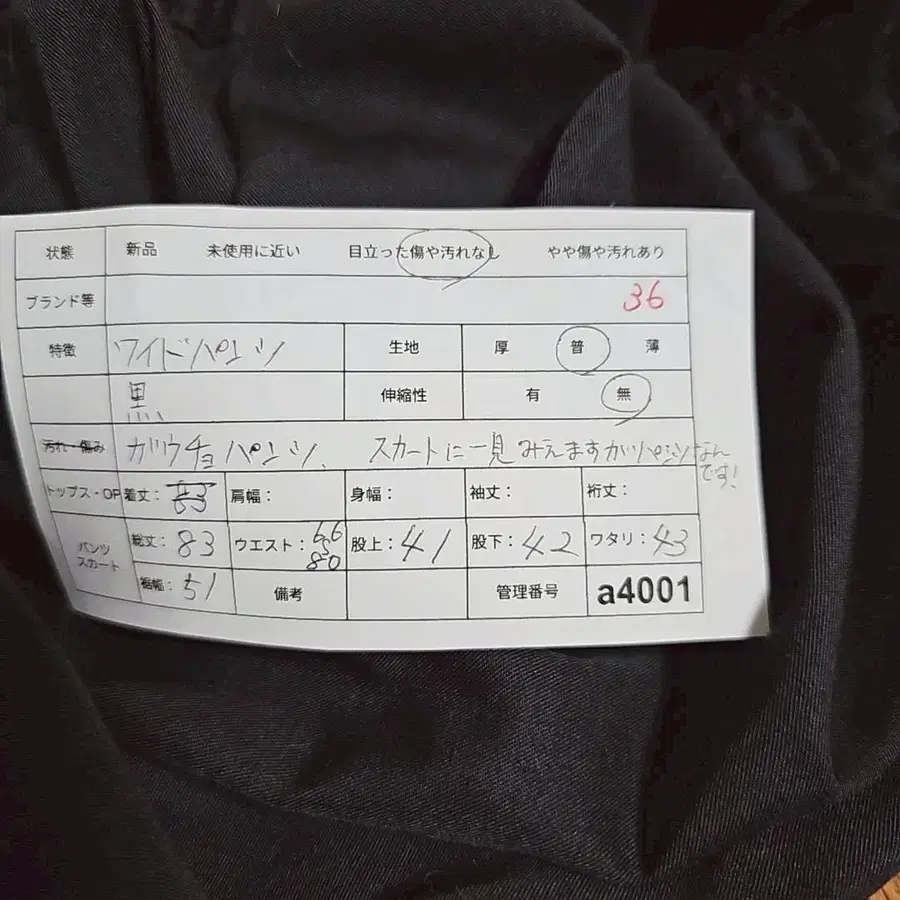 状態 新品 未使用に近い 目立った傷や汚れなし やや傷や汚れあり
ブランド等 36
特徴 ワイドパンツ 生地 厚 普 薄
黒 伸縮性 有 無
汚れ・傷み ガウチョパンツ、 スカートに一見みえますがパンツなん
です!
トップス・OP 着丈: 83 肩幅: 身幅: 袖丈: 裄丈:
パンツ
スカート
総丈: 83 ウエスト: 66
80
股上: 41 股下: 42 ワタリ: 43
裾幅: 51 備考 管理番号 a4001